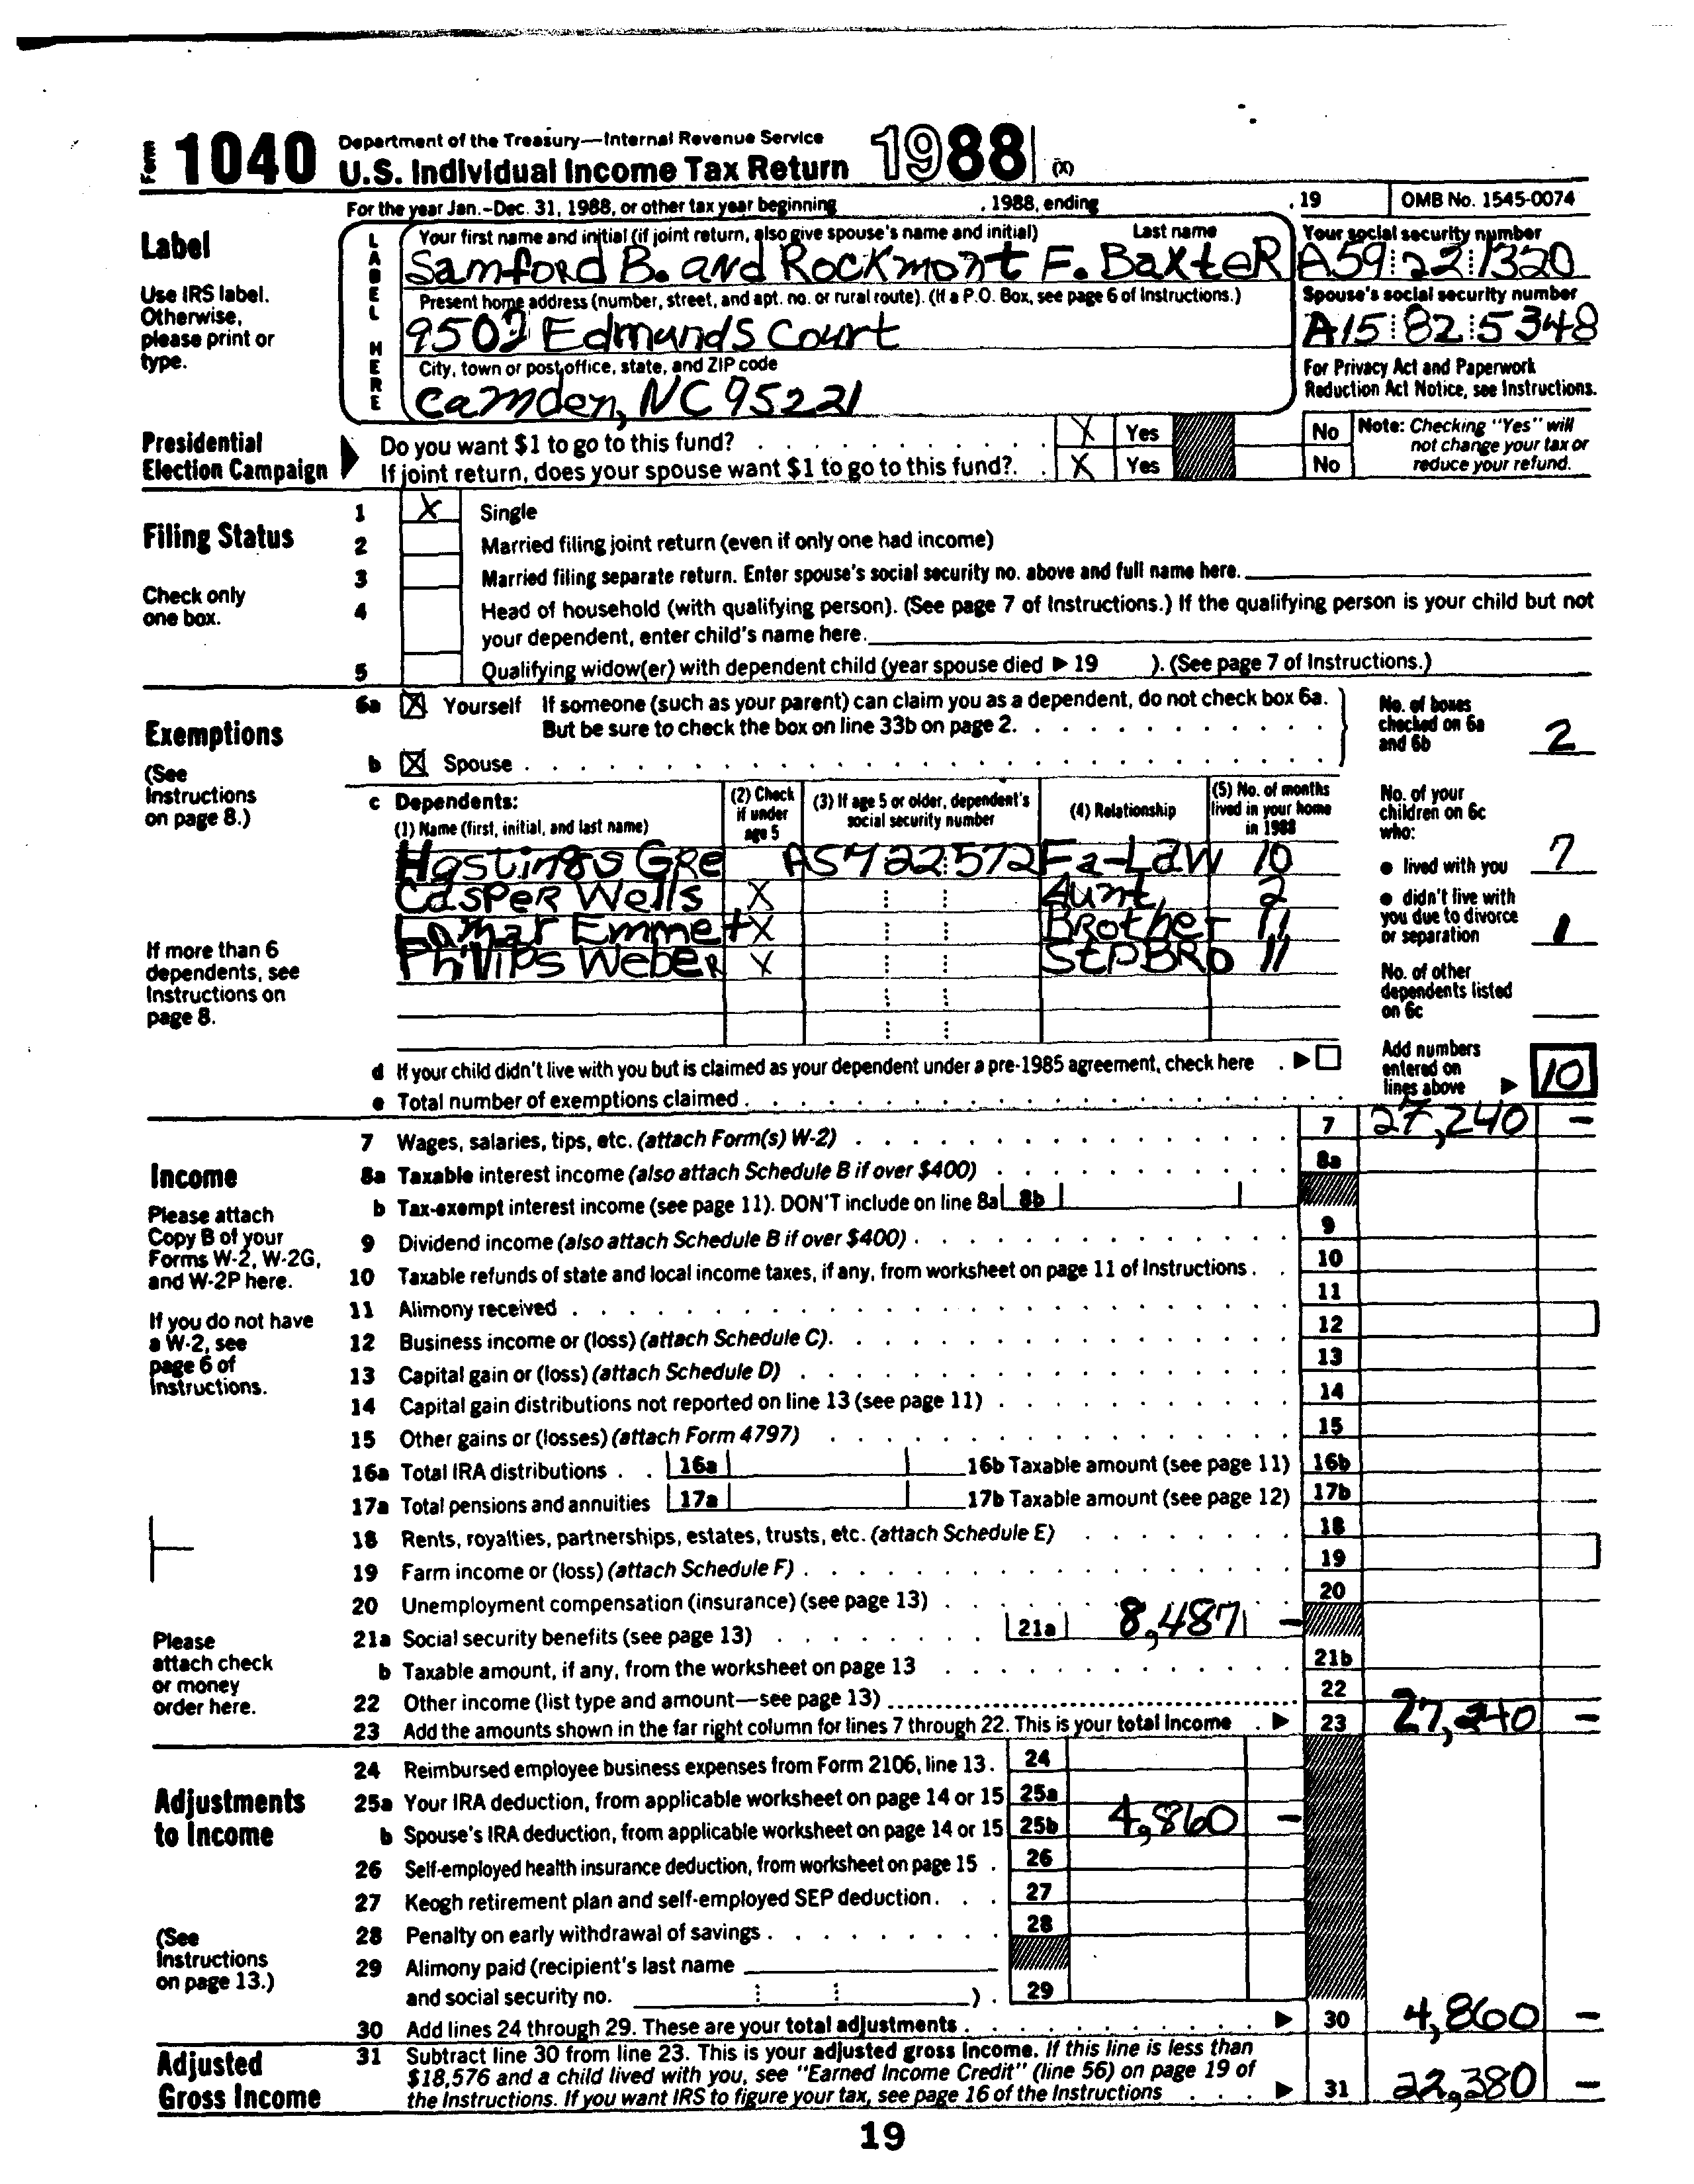 Form 1040 Department of the Treasury—Internal Revenue Service
U.S. Individual Income Tax Return 1988 (X)
For the year Jan.-Dec. 31, 1988, or other tax year beginning , 1988, ending , 19 OMB No. 1545-0074
Label
Use IRS label. Otherwise, please print or type.
LABEL HERE
Your first name and initial (if joint return, also give spouse's name and initial) Last name
Samford B. and Rockmont F. Baxter
Your social security number
A59 22 1320
Present home address (number, street, and apt. no. or rural route). (If a P.O. Box, see page 6 of Instructions.)
9502 Edmunds Court
Spouse's social security number
A15 82 5348
City, town or post office, state, and ZIP code
Camden, NC 95221
For Privacy Act and Paperwork Reduction Act Notice, see Instructions.
Presidential Election Campaign
Do you want $1 to go to this fund? X Yes No
If joint return, does your spouse want $1 to go to this fund? X Yes No
Note: Checking "Yes" will not change your tax or reduce your refund.
Filing Status
Check only one box.
1 X Single
2 Married filing joint return (even if only one had income)
3 Married filing separate return. Enter spouse's social security no. above and full name here.
4 Head of household (with qualifying person). (See page 7 of Instructions.) If the qualifying person is your child but not
your dependent, enter child's name here.
5 Qualifying widow(er) with dependent child (year spouse died ▶ 19 ). (See page 7 of Instructions.)
Exemptions
(See Instructions on page 8.)
6a X Yourself If someone (such as your parent) can claim you as a dependent, do not check box 6a.
But be sure to check the box on line 33b on page 2.
b X Spouse
No. of boxes checked on 6a and 6b 2
c Dependents:
(1) Name (first, initial, and last name)
(2) Check if under age 5
(3) If age 5 or older, dependent's social security number
(4) Relationship
(5) No. of months lived in your home in 1988
Hastings Gre A54 22 572 Fa-Law 10
Casper Wells X Aunt 2
Lamar Emmet X Brother 11
Philips Weber X StpBro 11
If more than 6 dependents, see Instructions on page 8.
No. of your children on 6c who:
● lived with you 7
● didn't live with you due to divorce or separation 1
No. of other dependents listed on 6c
d If your child didn't live with you but is claimed as your dependent under a pre-1985 agreement, check here ▶
e Total number of exemptions claimed
Add numbers entered on lines above ▶ 10
Income
Please attach Copy B of your Forms W-2, W-2G, and W-2P here.
If you do not have a W-2, see page 6 of Instructions.
Please attach check or money order here.
7 Wages, salaries, tips, etc. (attach Form(s) W-2) 7 27,240 –
8a Taxable interest income (also attach Schedule B if over $400) 8a
b Tax-exempt interest income (see page 11). DON'T include on line 8a 8b
9 Dividend income (also attach Schedule B if over $400) 9
10 Taxable refunds of state and local income taxes, if any, from worksheet on page 11 of Instructions 10
11 Alimony received 11
12 Business income or (loss) (attach Schedule C) 12
13 Capital gain or (loss) (attach Schedule D) 13
14 Capital gain distributions not reported on line 13 (see page 11) 14
15 Other gains or (losses) (attach Form 4797) 15
16a Total IRA distributions 16a 16b Taxable amount (see page 11) 16b
17a Total pensions and annuities 17a 17b Taxable amount (see page 12) 17b
18 Rents, royalties, partnerships, estates, trusts, etc. (attach Schedule E) 18
19 Farm income or (loss) (attach Schedule F) 19
20 Unemployment compensation (insurance) (see page 13) 20
21a Social security benefits (see page 13) 21a 8,487 –
b Taxable amount, if any, from the worksheet on page 13 21b
22 Other income (list type and amount—see page 13) 22
23 Add the amounts shown in the far right column for lines 7 through 22. This is your total income ▶ 23 27,240 –
Adjustments to Income
(See Instructions on page 13.)
24 Reimbursed employee business expenses from Form 2106, line 13. 24
25a Your IRA deduction, from applicable worksheet on page 14 or 15 25a
b Spouse's IRA deduction, from applicable worksheet on page 14 or 15 25b 4,860 –
26 Self-employed health insurance deduction, from worksheet on page 15 26
27 Keogh retirement plan and self-employed SEP deduction 27
28 Penalty on early withdrawal of savings 28
29 Alimony paid (recipient's last name
and social security no. ) 29
30 Add lines 24 through 29. These are your total adjustments ▶ 30 4,860 –
Adjusted Gross Income
31 Subtract line 30 from line 23. This is your adjusted gross income. If this line is less than
$18,576 and a child lived with you, see "Earned Income Credit" (line 56) on page 19 of
the Instructions. If you want IRS to figure your tax, see page 16 of the Instructions ▶ 31 22,380 –
19